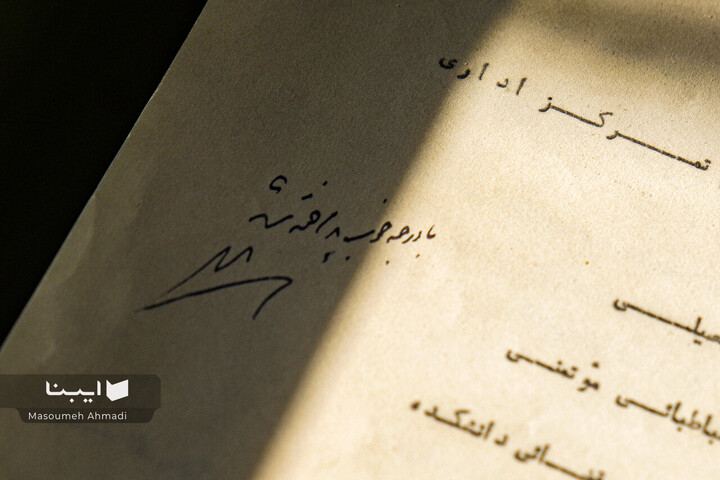 تمرکز اداری
با درجه خوب پذیرفته شد
طباطبائی مؤتمنی
دانشکده
ایبنا
Masoumeh Ahmadi